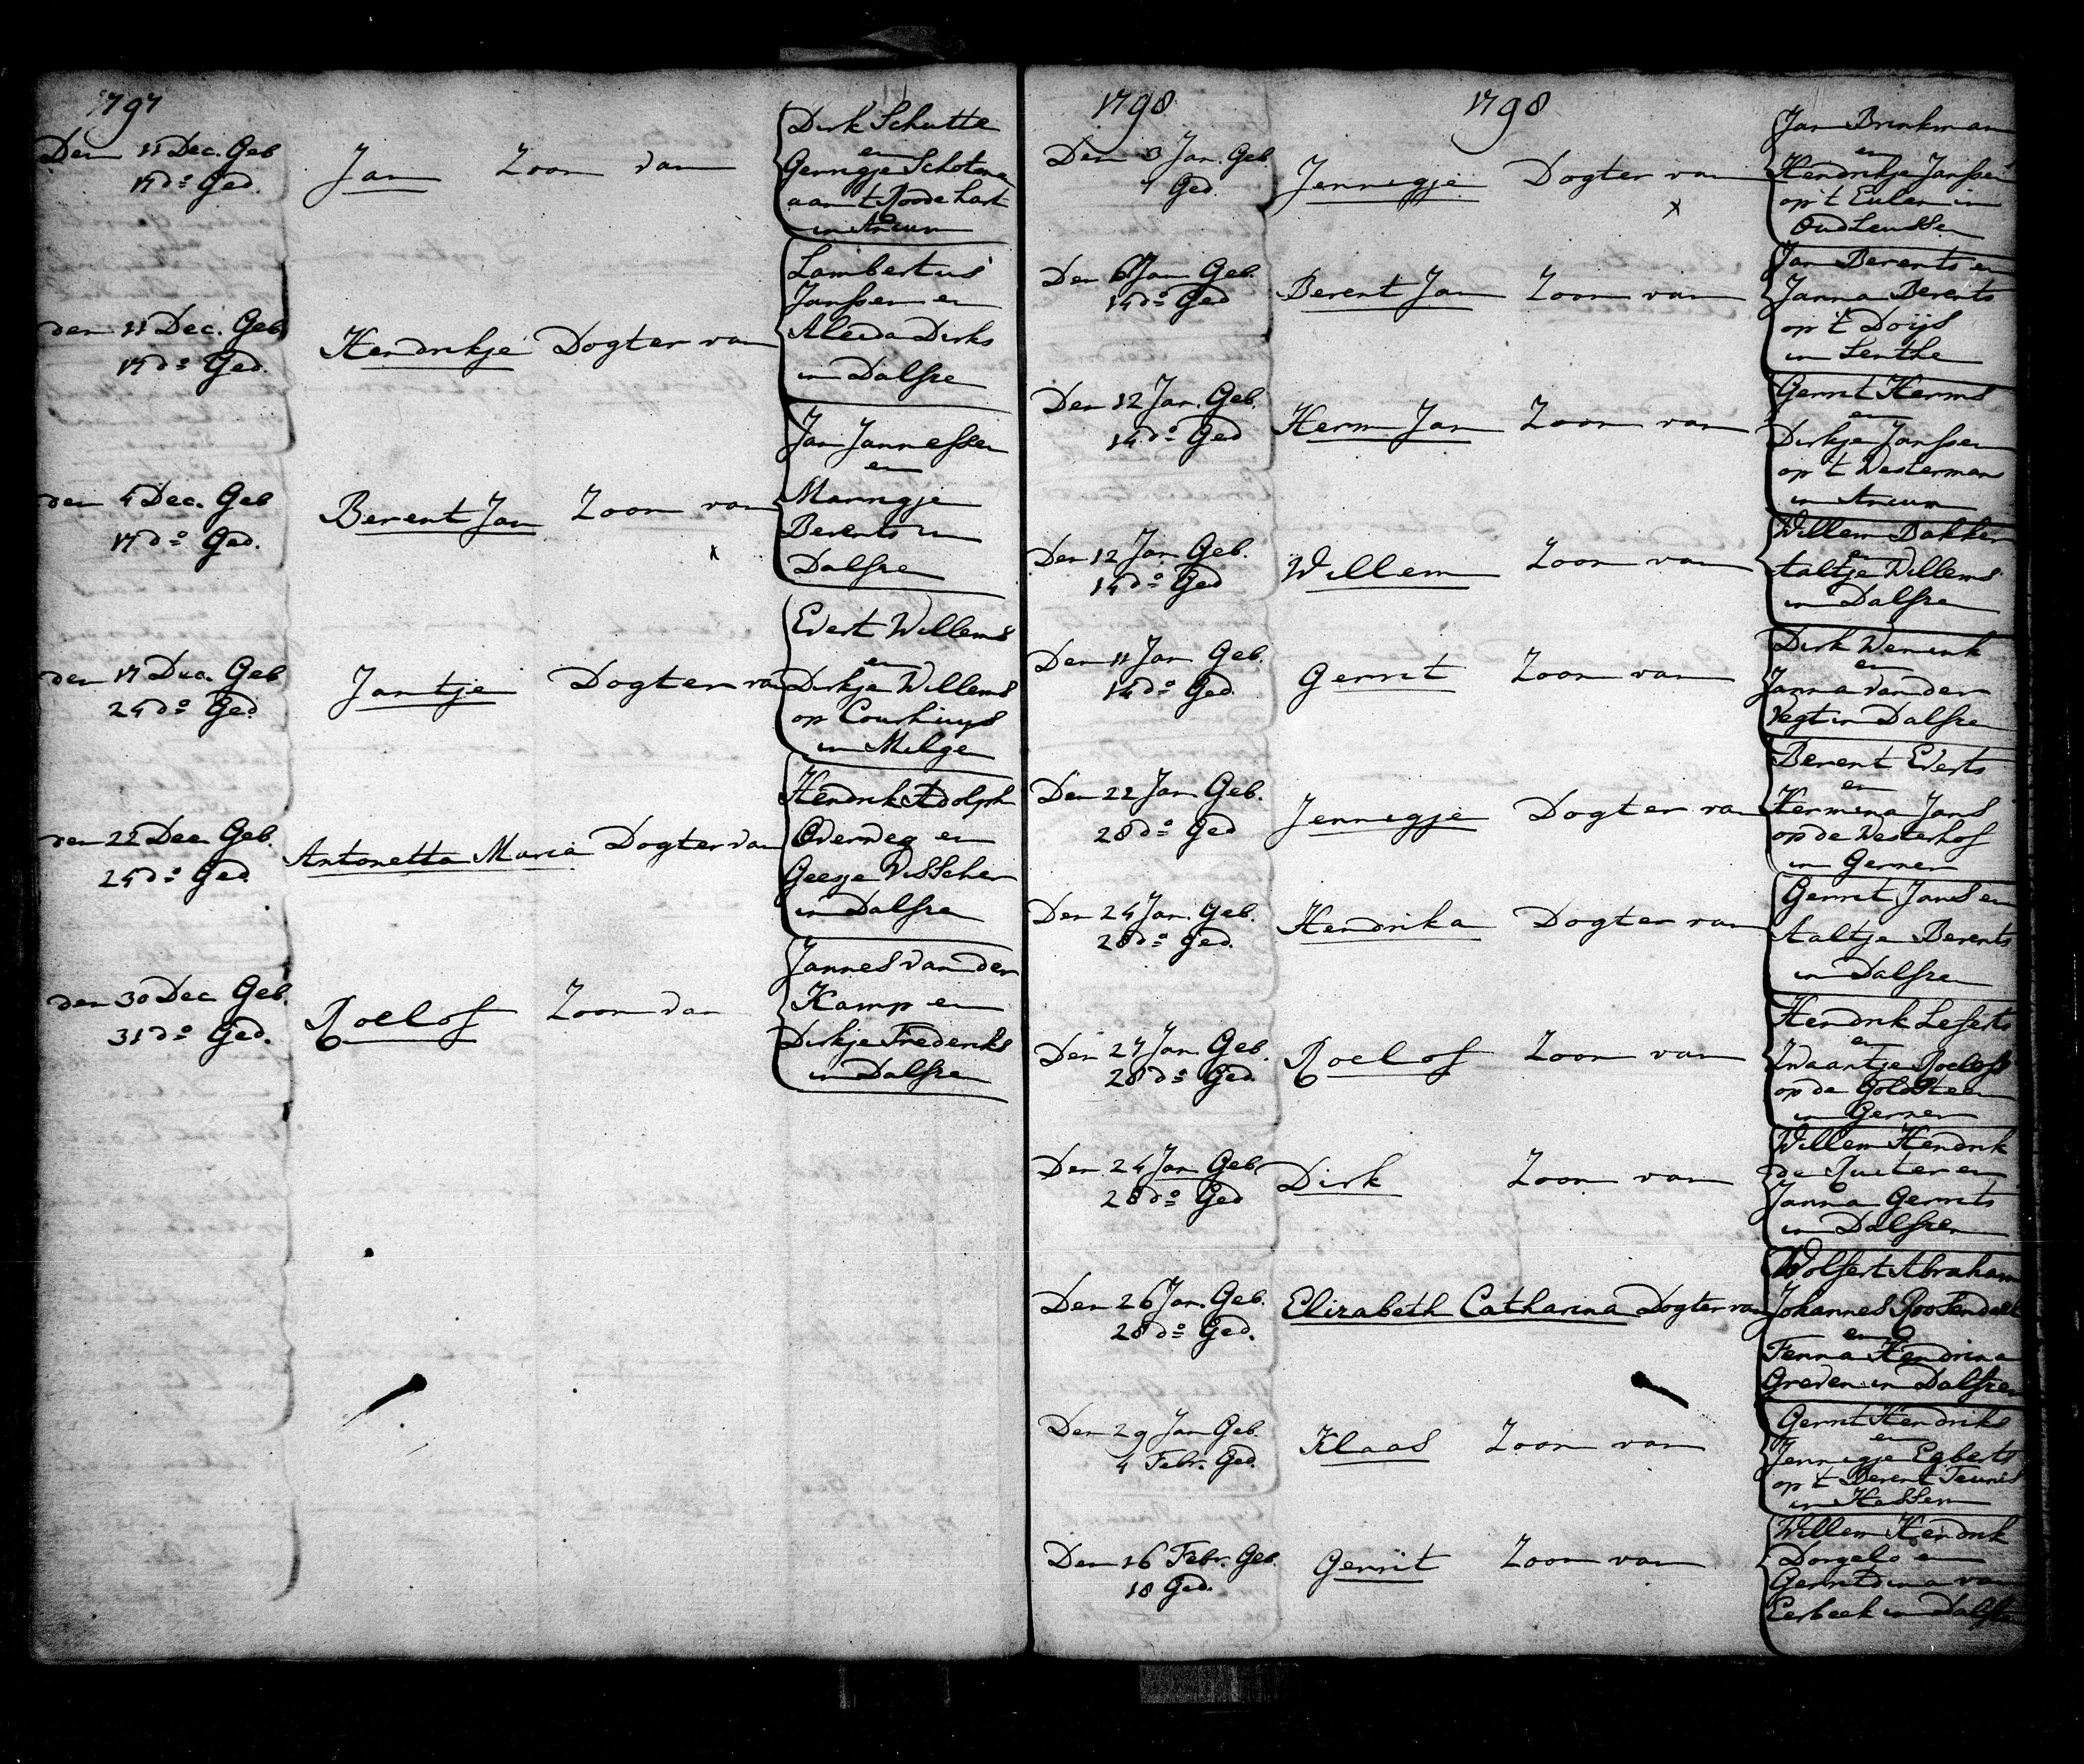 1797
Den 11 Dec. Geb
17 do Ged.
Jan Zoon van
Dirk Schutte
en
Gerrigje Schotma
aan t Roode hart
in Ancum
den 11 Dec. Geb
17 do Ged.
Hendrikje Dogter van
Lambertus
Janssen en
Aleida Dirks
in Dalfsen
den 4 Dec. Geb
17 do Ged.
Berent Jan Zoon van
x
Jan Jannessen
en
Marrigje
Berents in
Dalfsen
den 17 Dec. Geb
24 do Ged.
Jantje Dogter van
Evert Willems
en
Dirkje Willems
op Courhuys
in Milge
den 22 Dec Geb.
24 do Ged.
Antonetta Maria Dogter van
Hendrik Adolph
Overweg en
Geesje Visscher
in Dalfsen
den 30 Dec Geb.
31 do Ged.
Roelof Zoon van
Jannes van der
Kamp en
Dirkje Frederiks
in Dalfsen
1798 1798
Den 3 Jan. Geb.
7 Ged.
Jennigje Dogter van
x
Jan Brinkman
en
Hendrikje Janssen
op 't Eulen in
OudLeussen
Den 6 Jan Geb.
14 do Ged
Berent Jan Zoon van
Jan Berents en
Janna Berents
op 't Doijs
in Lenthe
Den 12 Jan. Geb.
14 do Ged
Herm Jan Zoon van
Gerrit Herms
en
Dirkje Janssen
op 't Westerman
in Ancum
Den 12 Jan Geb.
14 do Ged
Willem Zoon van
Willem Bakker
en
Aaltje Willems
in Dalfsen
Den 11 Jan Geb.
14 do Ged.
Gerrit Zoon van
Dirk Werink
en
Janna van der
Vegt in Dalfsen
Den 22 Jan Geb.
28 do Ged
Jennigje Dogter van
Berent Everts
en
Hermina Jans
op de Westerhof
in Gerner
Den 24 Jan. Geb.
28 do Ged.
Hendrika Dogter van
Gerrit Jans en
Aaltje Berents
in Dalfsen
Den 27 Jan. Geb.
28 do Ged.
Roelof Zoon van
Hendrik Leferts
en
Zwaantje Roelofs
op de Goldsteen
in Gerner
Den 24 Jan Geb
28 do Ged
Dirk Zoon van
Willem Hendrik
de Ruiter en
Janna Gerrits
in Dalfsen
Den 26 Jan. Geb.
28 do Ged.
Elizabeth Catharina Dogter van
Wolfert Abraham
Johannes Roosendael
en
Fenna Hendrina
Greven in Dalfsen
Den 29 Jan Geb.
4 Febr. Ged.
Klaas Zoon van
Gerrit Hendriks
en
Jennigje Egberts
op 't Berent Teunis
in Hessem
Den 16 Febr. Geb.
18 Ged.
Gerrit Zoon van
Willem Hendrik
Dorgelo en
Gerritdina van
Eerbeek in Dalfsen